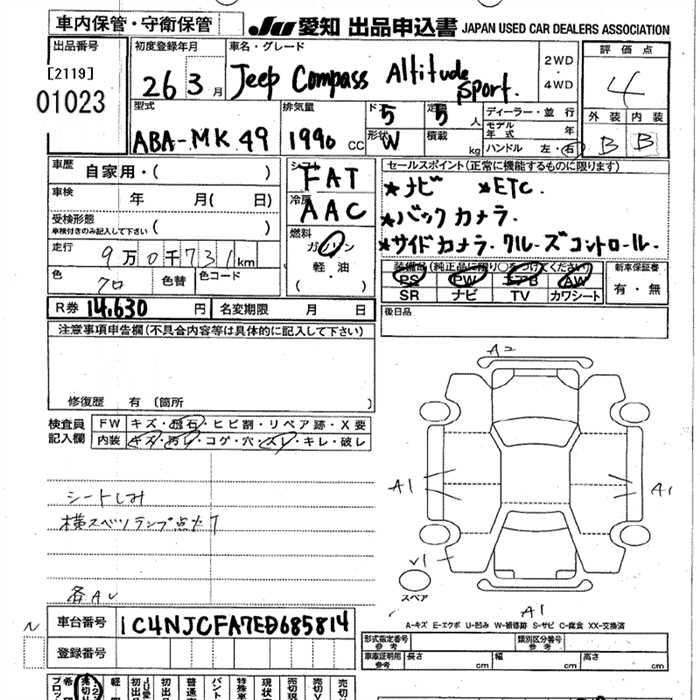 車内保管・守衛保管
JU 愛知 出品申込書 JAPAN USED CAR DEALERS ASSOCIATION
出品番号
[2119]
01023
初度登録年月
26 3 月
車名・グレード
Jeep Compass Altitude Sport.
2WD
・
4WD
評価点
4
型式
ABA-MK49
排気量
1990 cc
ド 5
定員 5 人
形状 W
積載 kg
ディーラー・並行
モデル年式 年
ハンドル 左・右
外装 内装
B B
車歴 自家用・( )
車検 年 月( 日)
受検形態
車検付きのみ記入して下さい ( )
走行 9万0千731km
色 クロ 色替 色コード
シフト FAT
冷房 AAC
燃料
ガソリン
軽・油
( ・ )
セールスポイント(正常に機能するものに限ります)
★ナビ ★ETC.
★バックカメラ.
★サイドカメラ.クルーズコントロール.
装備品(純正品に限り○をつけてください)
PS PW エアB AW
SR ナビ TV カワシート
新車保証書
有・無
R券 14,630 円 名変期限 月 日
後日品
注意事項申告欄(不具合内容等は具体的に記入して下さい)
修復歴 有(箇所 )
検査員
記入欄
FW キズ・飛石・ヒビ割・リペア跡・X要
内装 キズ・汚レ・コゲ・穴・スレ・キレ・破レ
シートしみ
各AU
A2
A1
A1
V1
スペア
A1
A-キズ E-エクボ U-凹み W-補修跡 S-サビ C-腐食 XX-交換済
車台番号 1C4NJCFA7ED685814
登録番号
型式指定番号
参考
類別区分番号
参考
車庫証明用
参考
長さ cm 幅 cm 高さ cm